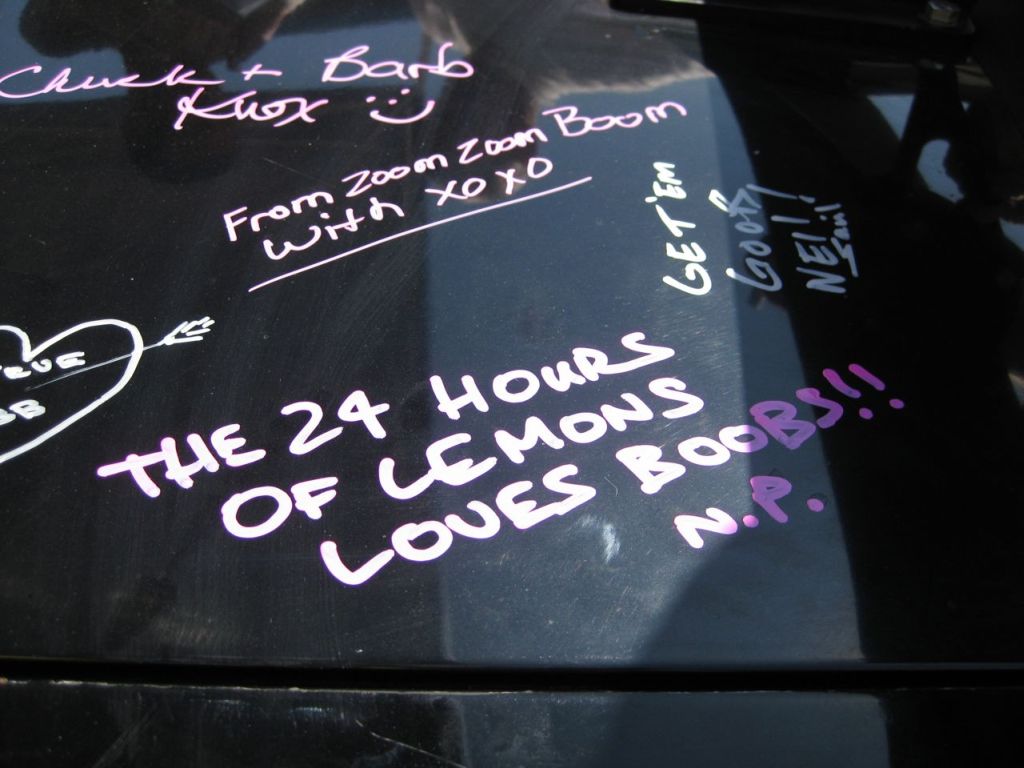 Chuck + Barb
Knox
From Zoom Zoom Boom
With XOXO
GET 'EM
GOOD!
NEIL!
THE 24 HOURS
OF LEMONS
LOVES BOOBS!!
N.P.
BB